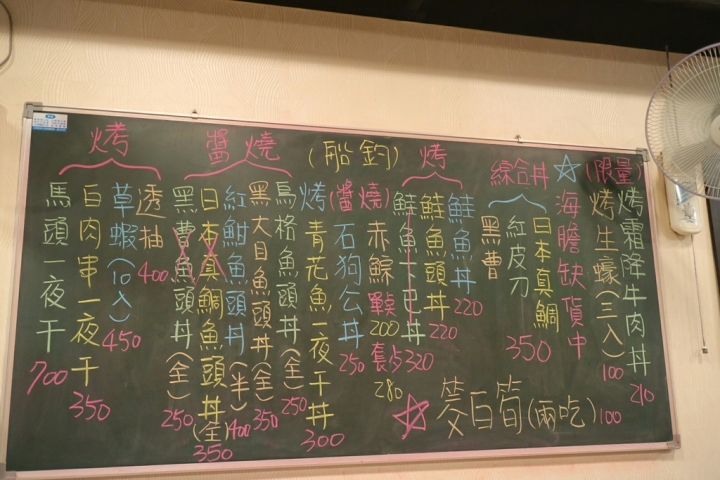 (限量)
烤霜降牛肉丼 210
烤生蠔(三入) 100
☆海膽缺貨中
綜合丼
日本真鯛
紅皮刀
黑曹
350
烤
鮭魚丼 220
鮭魚頭丼 220
鮭魚下巴丼 320
☆茭白筍(兩吃) 100
(船釣)
(醬燒)
赤鯮 單點 200 套 280
石狗公丼 250
烤青花魚一夜干丼 300
醬燒
烏格魚頭丼(全) 250
黑大目魚頭丼(全) 350
紅魽魚頭丼(半) 400
日本真鯛魚頭丼(全) 350
黑曹魚頭丼(全) 250
烤
透抽 400
草蝦(10入) 450
白肉串一夜干 350
馬頭一夜干 700